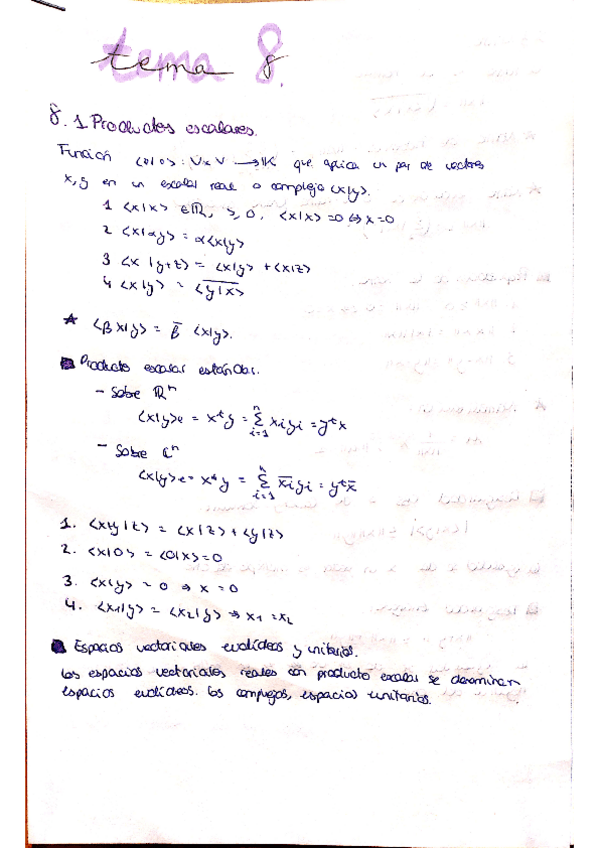 tema 8.
8.1 Productos escalares.
Función <o|o>: V×V → K que aplica un par de vectores
x,y en un escalar real o complejo <x|y>.
1 <x|x> ∈ ℝ, ≥ 0, <x|x> = 0 ⇔ x=0
2 <x|αy> = α<x|y>
3 <x|y+z> = <x|y> + <x|z>
4 <x|y> = \overline{<y|x>}
★ <βx|y> = \overline{β} <x|y>.
Producto escalar estándar.
- Sobre ℝⁿ
<x|y>e = xᵗy = Σ_{i=1}^{n} xiyi = yᵗx
- Sobre ℂⁿ
<x|y>e = x*y = Σ_{i=1}^{n} \overline{xi}yi = yᵗ\overline{x}
1. <x+y|z> = <x|z> + <y|z>
2. <x|0> = <0|x> = 0
3. <x|y> = 0 ⇒ x = 0
4. <x1|y> = <x2|y> ⇒ x1 = x2
Espacios vectoriales euclídeos y unitarios.
Los espacios vectoriales reales con producto escalar se denominan
espacios euclídeos. Los complejos, espacios unitarios.